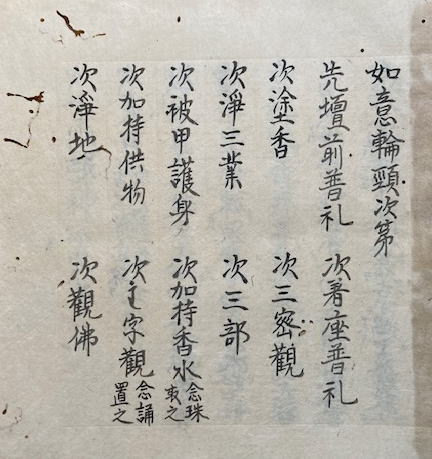 如意輪頸次第
先壇前普礼 次著座普礼
次塗香 次三密觀
次淨三業 次三部
次被甲護身 次加持香水 念珠取之
次加持供物 次字觀 念誦置之
次淨地 次觀佛